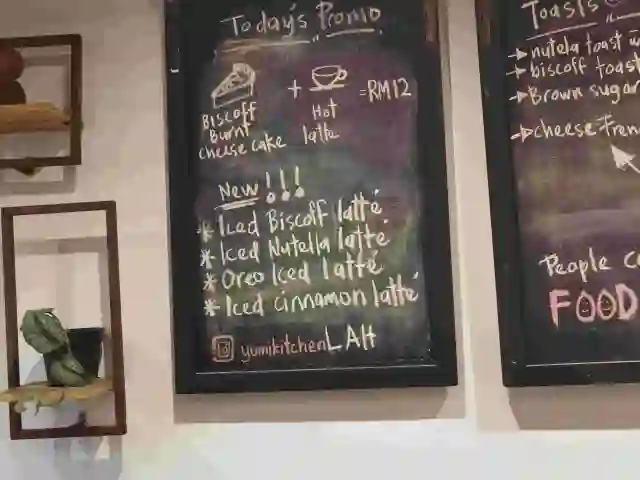 Today's Promo
Biscoff
Burnt
cheese cake
+
Hot
latte
=RM12
New!!!
* Iced Biscoff latté
* Iced Nutella latté
* Oreo Iced latté
* Iced cinnamon latté
yumikitchen LAH
Toasts
nutela toast
biscoff toast
Brown sugar
cheese Fren
People
FOOD